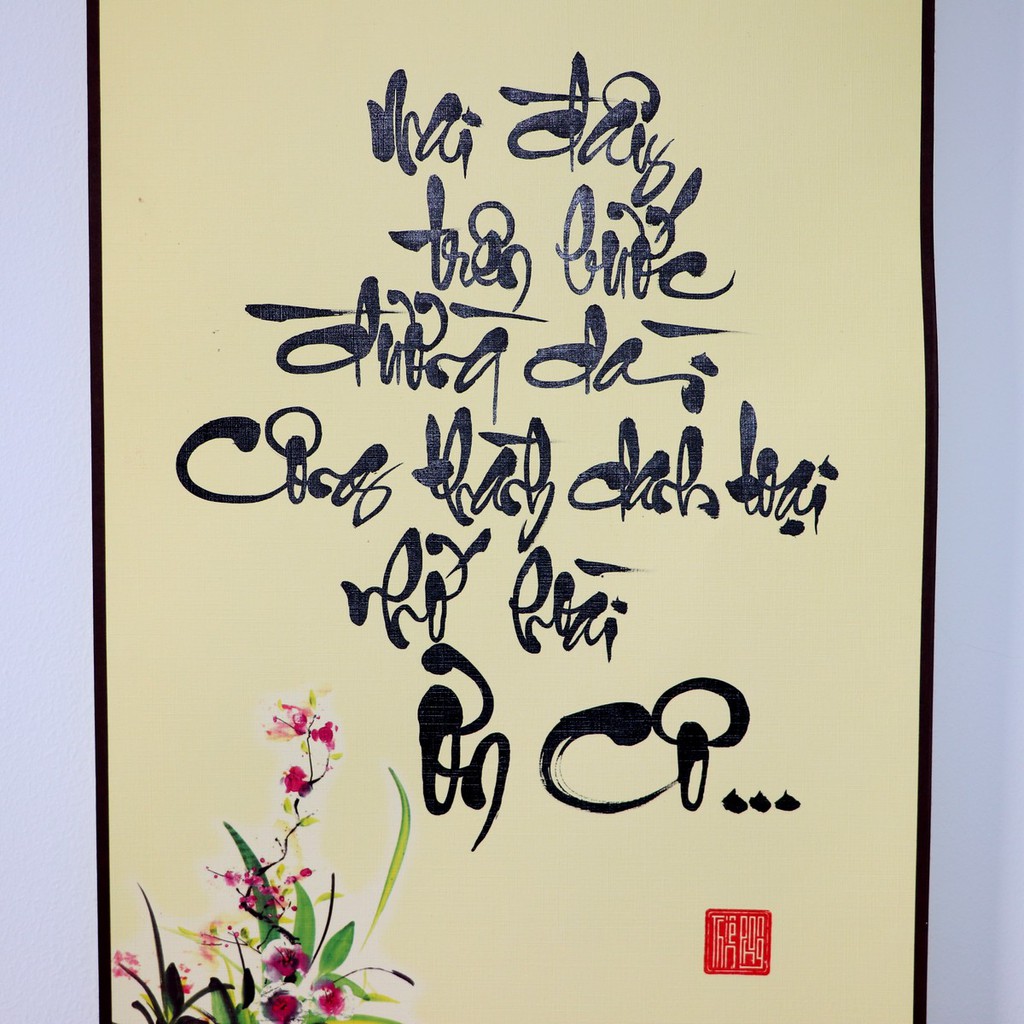 Mai đây
trên bước
đường dài
Công thành danh toại
nhớ hoài
ơn Cô...